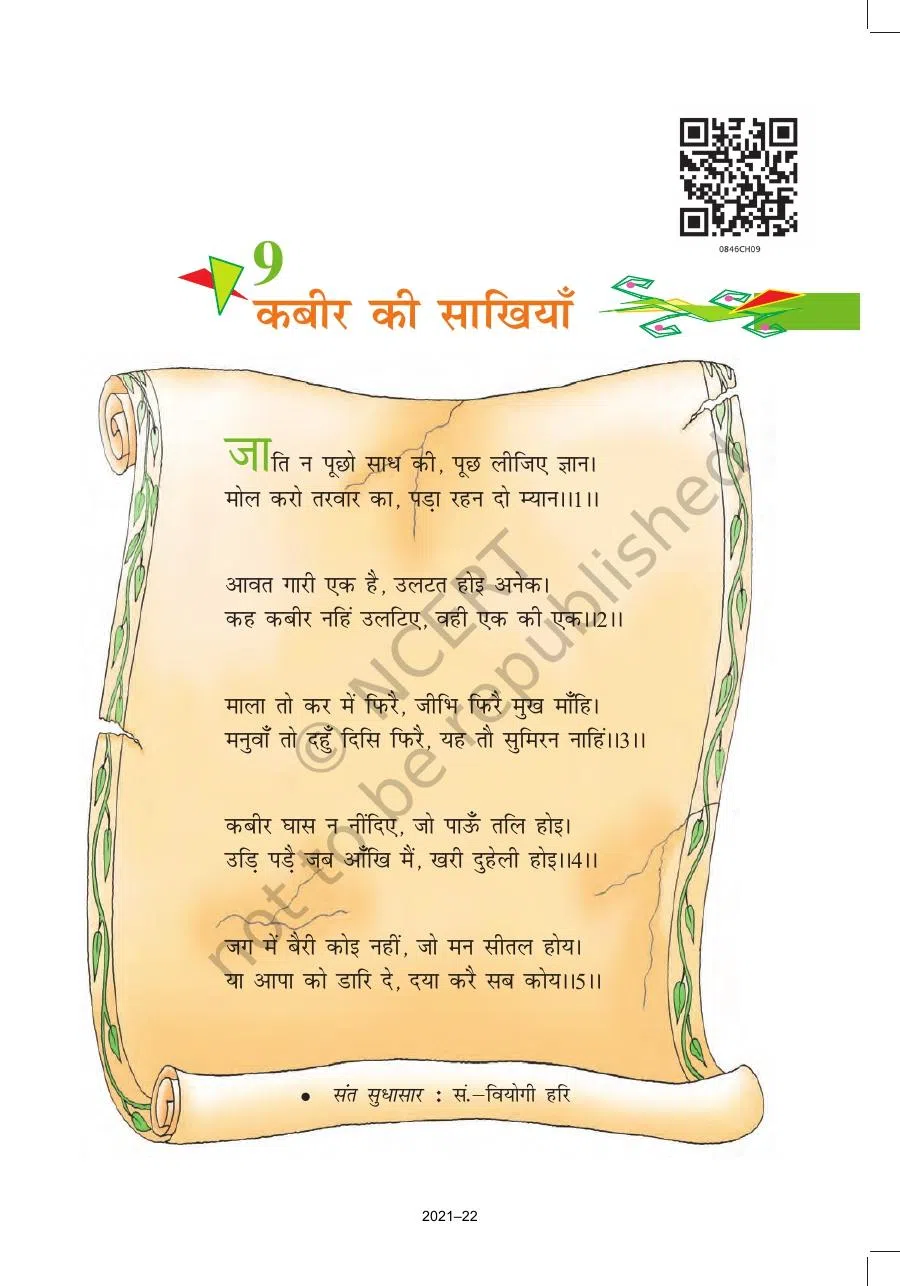 0846CH09
9
कबीर की साखियाँ
जाति न पूछो साध की, पूछ लीजिए ज्ञान।
मोल करो तरवार का, पड़ा रहन दो म्यान।।1।।
आवत गारी एक है, उलटत होइ अनेक।
कह कबीर नहिं उलटिए, वही एक की एक।।2।।
माला तो कर में फिरै, जीभि फिरै मुख माँहि।
मनुवाँ तो दहुँ दिसि फिरै, यह तौ सुमिरन नाहिं।।3।।
कबीर घास न नींदिए, जो पाऊँ तलि होइ।
उड़ि पड़ै जब आँखि मैं, खरी दुहेली होइ।।4।।
जग में बैरी कोइ नहीं, जो मन सीतल होय।
या आपा को डारि दे, दया करै सब कोय।।5।।
• संत सुधासार : सं.–वियोगी हरि
© NCERT
not to be republished
2021–22